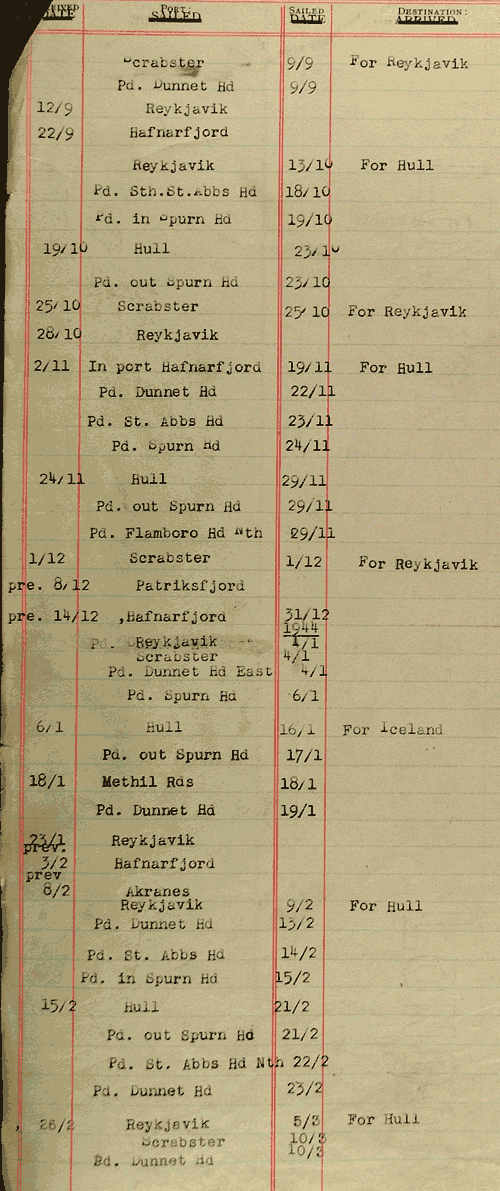 ARRIVED PORT: SAILED DESTINATION:
DATE SAILED DATE ARRIVED
Scrabster 9/9 For Reykjavik
Pd. Dunnet Hd 9/9
12/9 Reykjavik
22/9 Hafnarfjord
Reykjavik 13/10 For Hull
Pd. Sth.St.Abbs Hd 18/10
Pd. in Spurn Hd 19/10
19/10 Hull 23/10
Pd. out Spurn Hd 23/10
25/10 Scrabster 25/10 For Reykjavik
28/10 Reykjavik
2/11 In port Hafnarfjord 19/11 For Hull
Pd. Dunnet Hd 22/11
Pd. St. Abbs Hd 23/11
Pd. Spurn Hd 24/11
24/11 Hull 29/11
Pd. out Spurn Hd 29/11
Pd. Flamboro Hd Nth 29/11
1/12 Scrabster 1/12 For Reykjavik
pre. 8/12 Patriksfjord
pre. 14/12 ,Hafnarfjord 31/12
1944
Reykjavik 1/1
Scrabster 4/1
Pd. Dunnet Hd East 4/1
Pd. Spurn Hd 6/1
6/1 Hull 16/1 For Iceland
Pd. out Spurn Hd 17/1
18/1 Methil Rds 18/1
Pd. Dunnet Hd 19/1
23/1 Reykjavik
prev.
3/2 Hafnarfjord
prev
8/2 Akranes
Reykjavik 9/2 For Hull
Pd. Dunnet Hd 13/2
Pd. St. Abbs Hd 14/2
Pd. in Spurn Hd 15/2
15/2 Hull 21/2
Pd. out Spurn Hd 21/2
Pd. St. Abbs Hd Nth 22/2
Pd. Dunnet Hd 23/2
26/2 Reykjavik 5/3 For Hull
Scrabster 10/3
Pd. Dunnet Hd 10/3